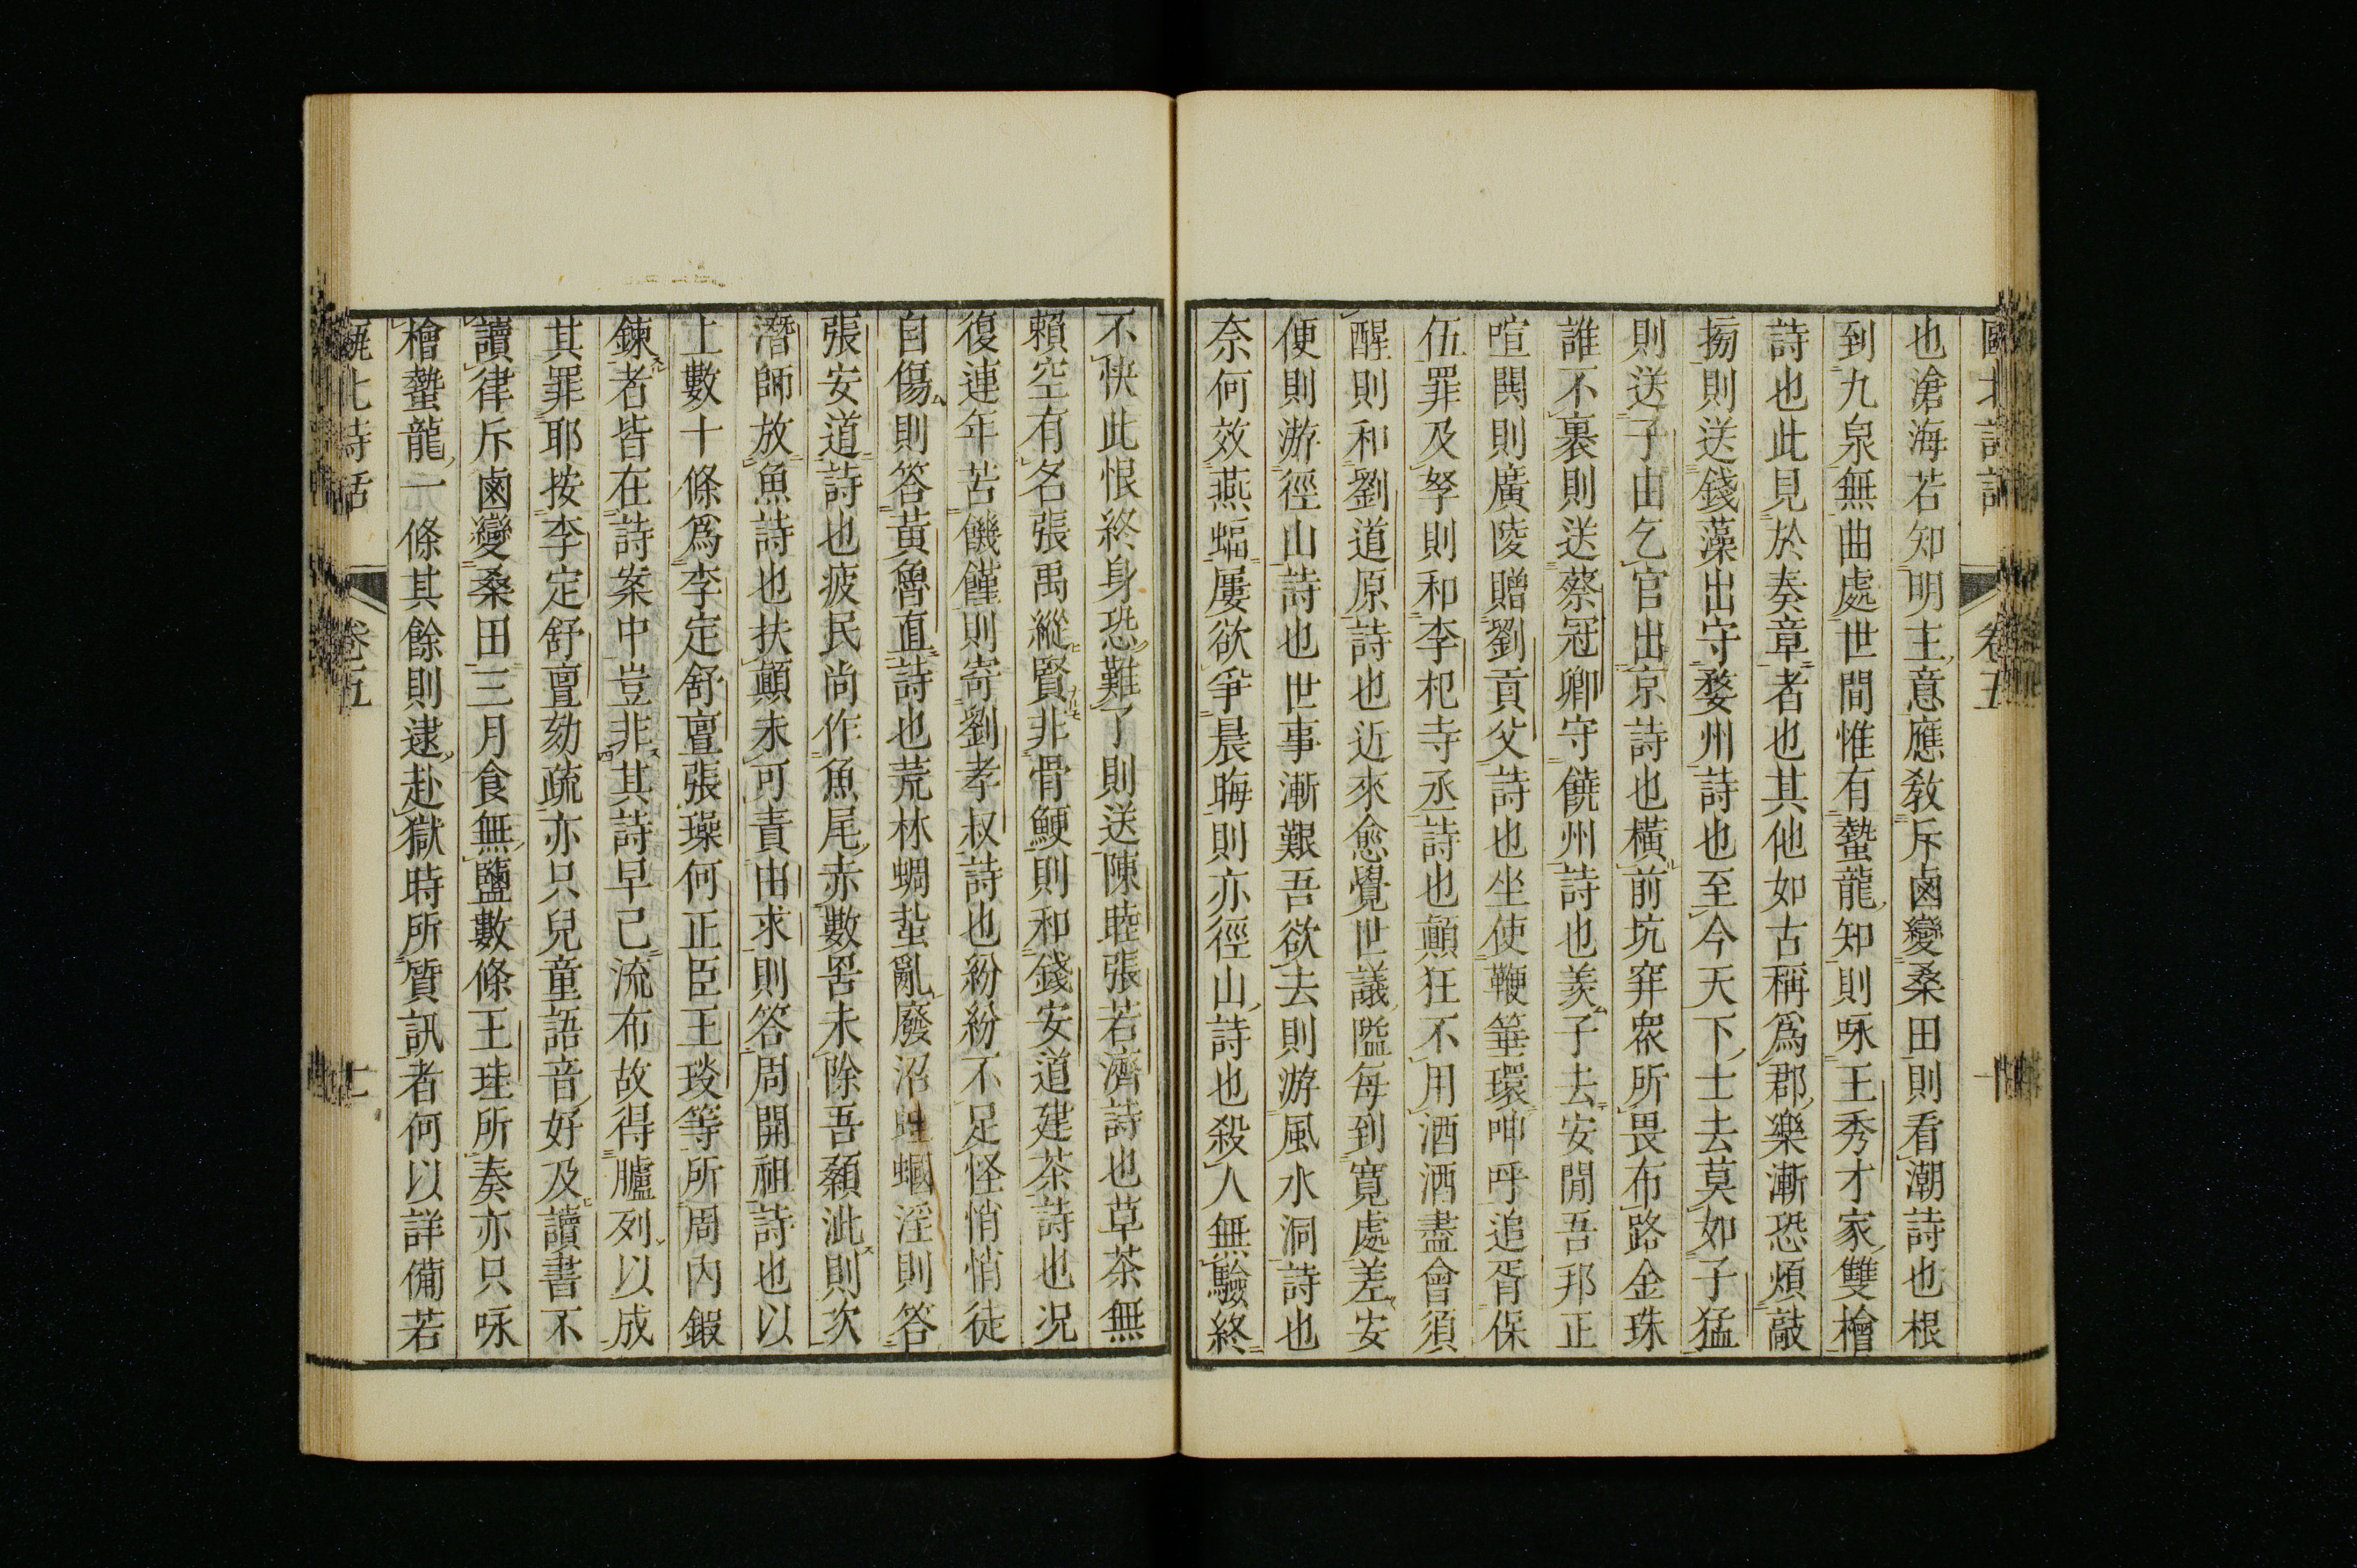 甌北詩話 卷五
也滄海若知明主意應敎斥鹵變桑田則看潮詩也根
到九泉無曲處世間惟有蟄龍知則咏王秀才家雙檜
詩也此見於奏章者也其他如古稱爲郡樂漸恐煩敲
搒則送錢藻出守婺州詩也至今天下士去莫如子猛
則送子由乞官出京詩也橫前坑穽衆所畏布路金珠
誰不裹則送蔡冠卿守饒州詩也羨子去安閒吾邦正
喧鬨則廣陵贈劉貢父詩也坐使鞭箠環呻呼追胥保
伍罪及孥則和李杞寺丞詩也顚狂不用酒酒盡會須
醒則和劉道原詩也近來愈覺世議隘每到寬處差安
便則游徑山詩也世事漸艱吾欲去則游風水洞詩也
奈何效燕蝠屢欲爭晨晦則亦徑山詩也殺人無驗終
不快此恨終身恐難了則送陳睦張若濟詩也草茶無
賴空有名張禹縱賢非骨鯁則和錢安道建茶詩也况
復連年苦饑饉則寄劉孝叔詩也紛紛不足怪悄悄徒
自傷則答黃魯直詩也荒林蜩蚻亂廢沼蛙蟈淫則答
張安道詩也疲民尚作魚尾赤數罟未除吾顙泚則次
潛師放魚詩也扶顚未可責由求則答周開祖詩也以
上數十條爲李定舒亶張璪何正臣王琰等所周內鍜
鍊者皆在詩案中豈非其詩早已流布故得臚列以成
其罪耶按李定舒亶劾疏亦只兒童語音好及讀書不
讀律斥鹵變桑田三月食無鹽數條王珪所奏亦只咏
檜蟄龍一條其餘則逮赴獄時所質訊者何以詳備若
甌北詩話 卷五 七